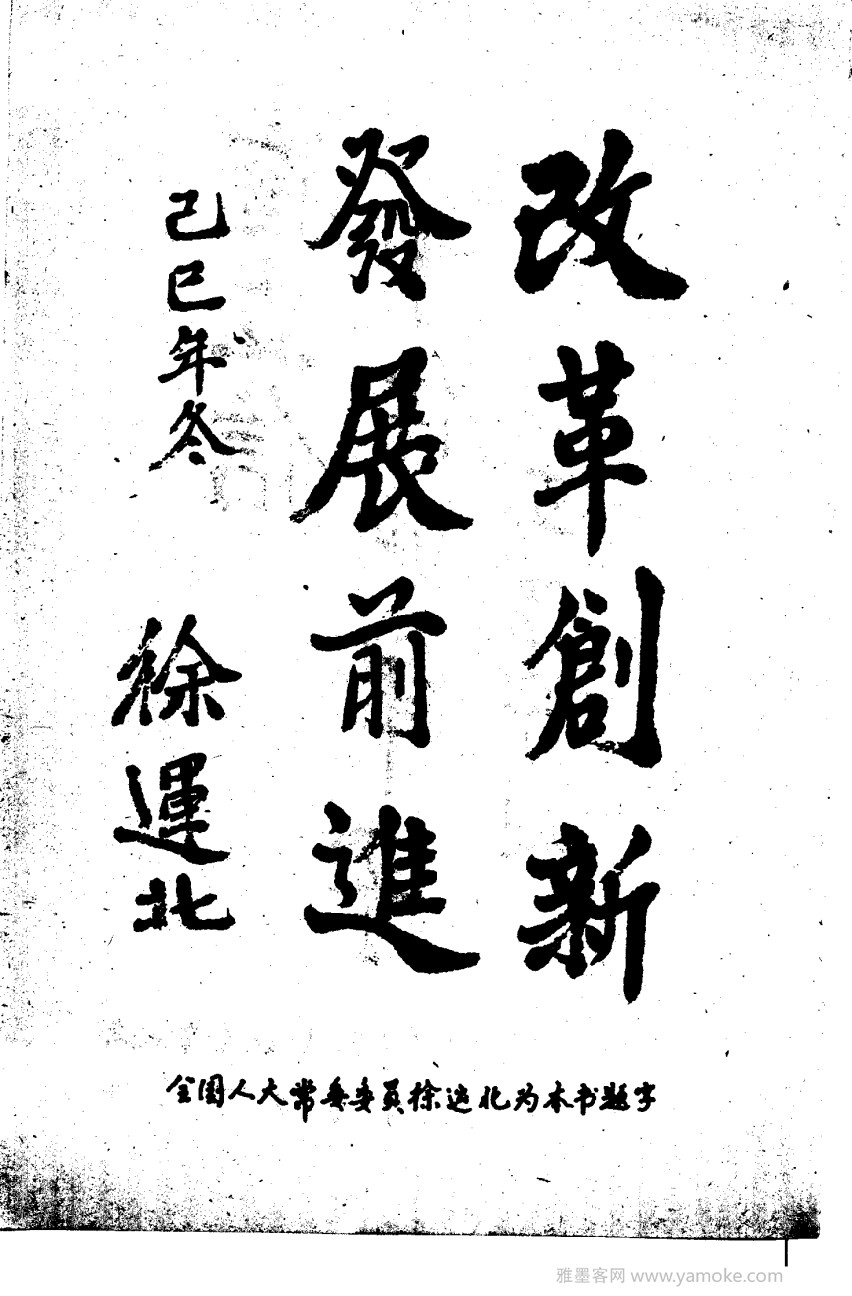 改革創新
發展前進
己巳年冬
徐運北
全国人大常委委員徐运北为本书题字
雅墨客网 www.yamoke.com